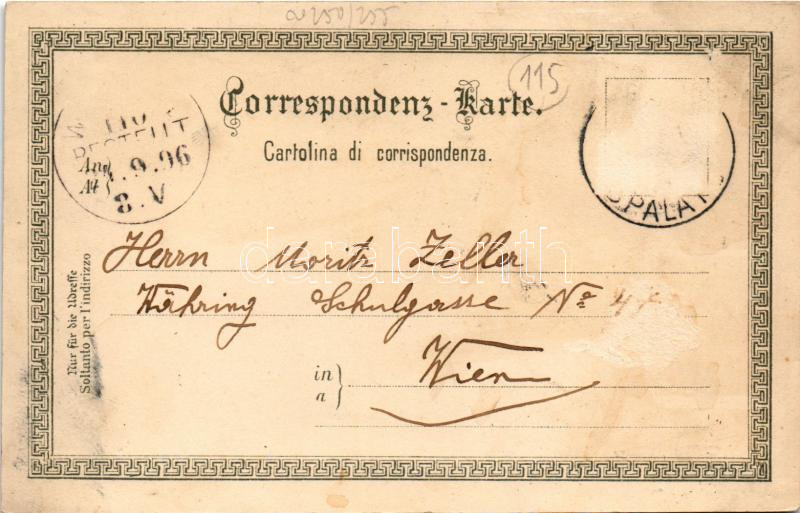 20250/255
115
Correspondenz-Karte.
Cartolina di corrispondenza.
BESTELLT
9.96
8.V
SPALAT
Herrn Moritz Zeller
Währing Schulgasse No 4
in
a
Wien
Nur für die Adresse
Soltanto per l'indirizzo
darabanth